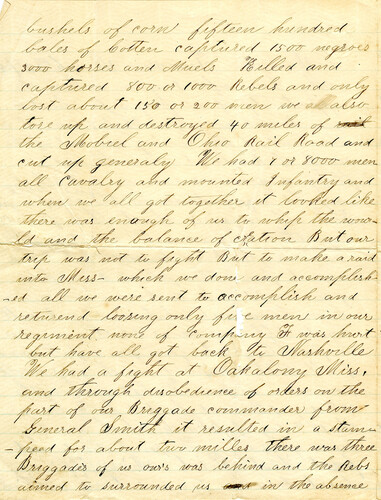 bushels of corn fifteen hundred
bales of Cotten captured 1500 negroes
3000 horses and Muels Killed and
captured 800 or 1000 Rebels and only
lost about 150 or 200 men we also
tore up and destroyed 40 miles of
the Mobiel and Ohio Rail Road and
cut up generaly We had 7 or 8000 men
all Cavalry and mounted Infantry and
when we all got together it looked like
there was enough of us to whip the wou-
ld and the balance of But our
trip was not to fight But to make a raid
into Miss- which we done and accomplish
-ed all we were sent to accomplish and
returend loosing only five men in our
regiment none of Company F was hurt
but have all got back to Nashville
We had a fight at Oakalony Miss,
and through disobedience of orders on the
part of our Briggade commander from
General Smith it resulted in a stam-
-peed for about two milles there was three
Briggades of us ours was behind and the Rebs
aimed to surrounded us in the absence